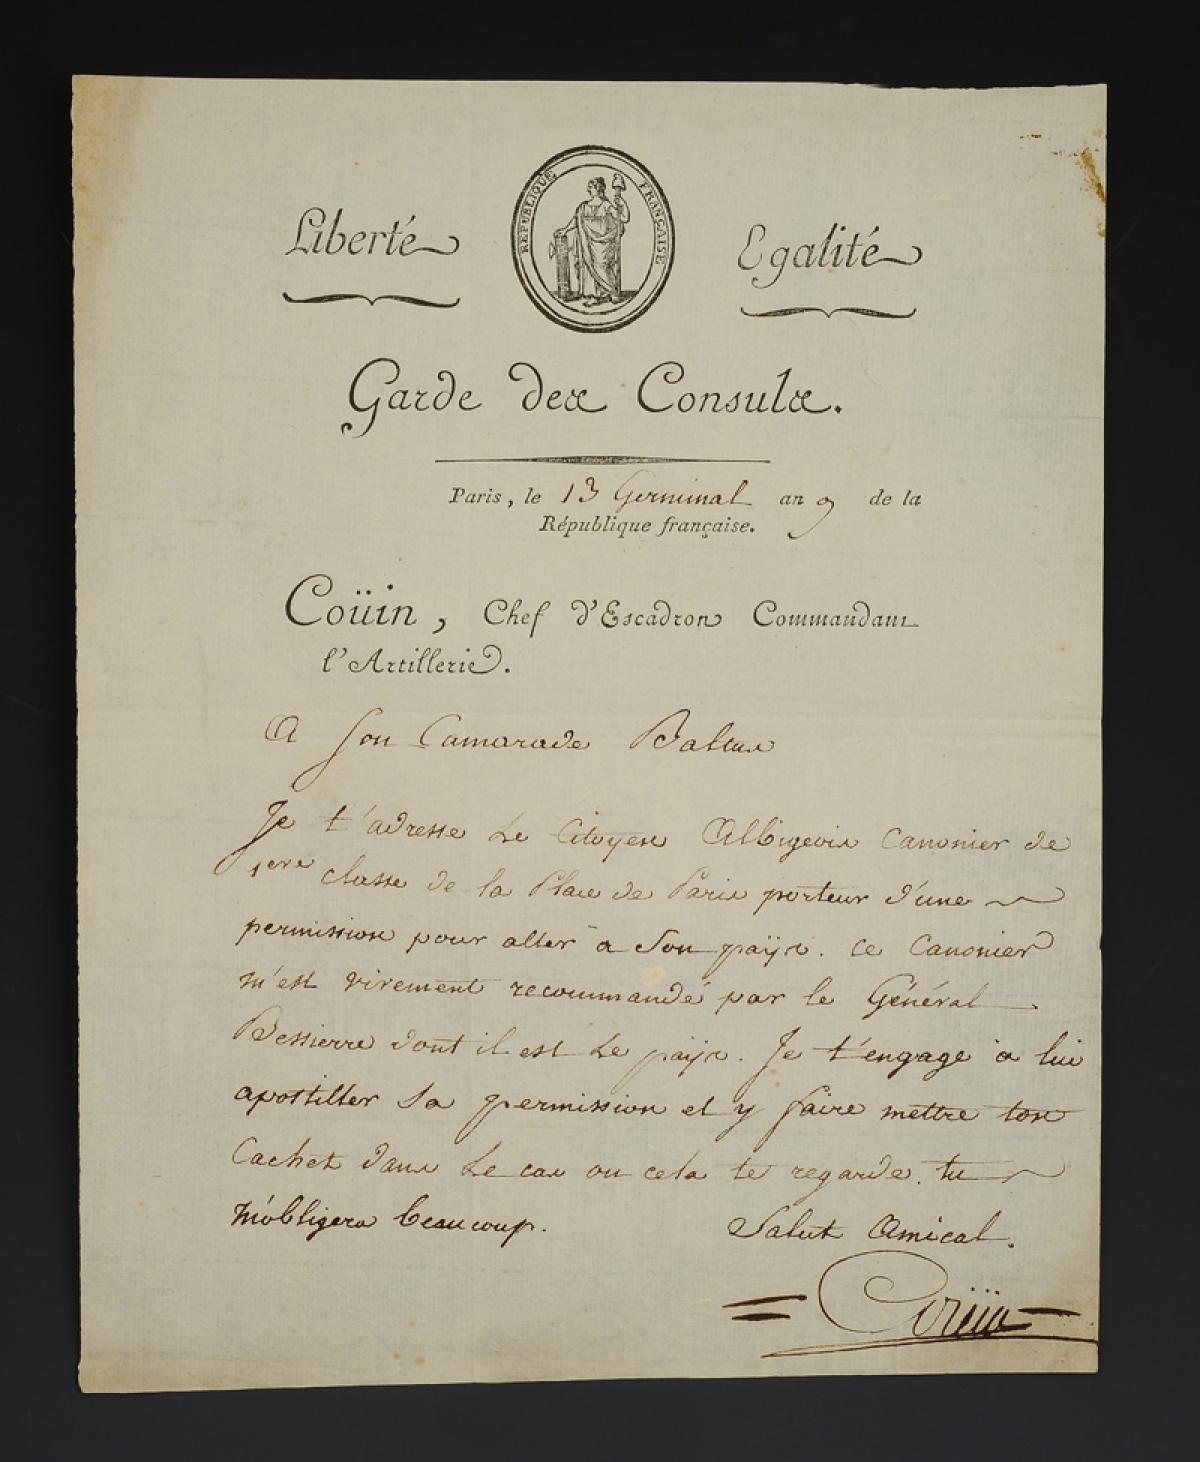 RÉPUBLIQUE FRANÇAISE
Liberté Egalité
Garde des Consuls.
Paris, le 13 Germinal an 9 de la
République française.
Coüin, Chef d'Escadron Commandant
l'Artillerie.
A Son Camarade Baltus
Je t'adresse Le Citoyen Albigeois Canonier de
1ere Classe de la Place de Paris porteur d'une
permission pour aller a Son païs. Ce Canonier
m'est virement recommandé par le Général
Bessierre dont il est Le païs. Je t'engage a lui
apostiller Sa permission et y faire mettre ton
Cachet dans Le cas ou cela te regarde. tu
m'obligera beaucoup. Salut Amical.
Coüin